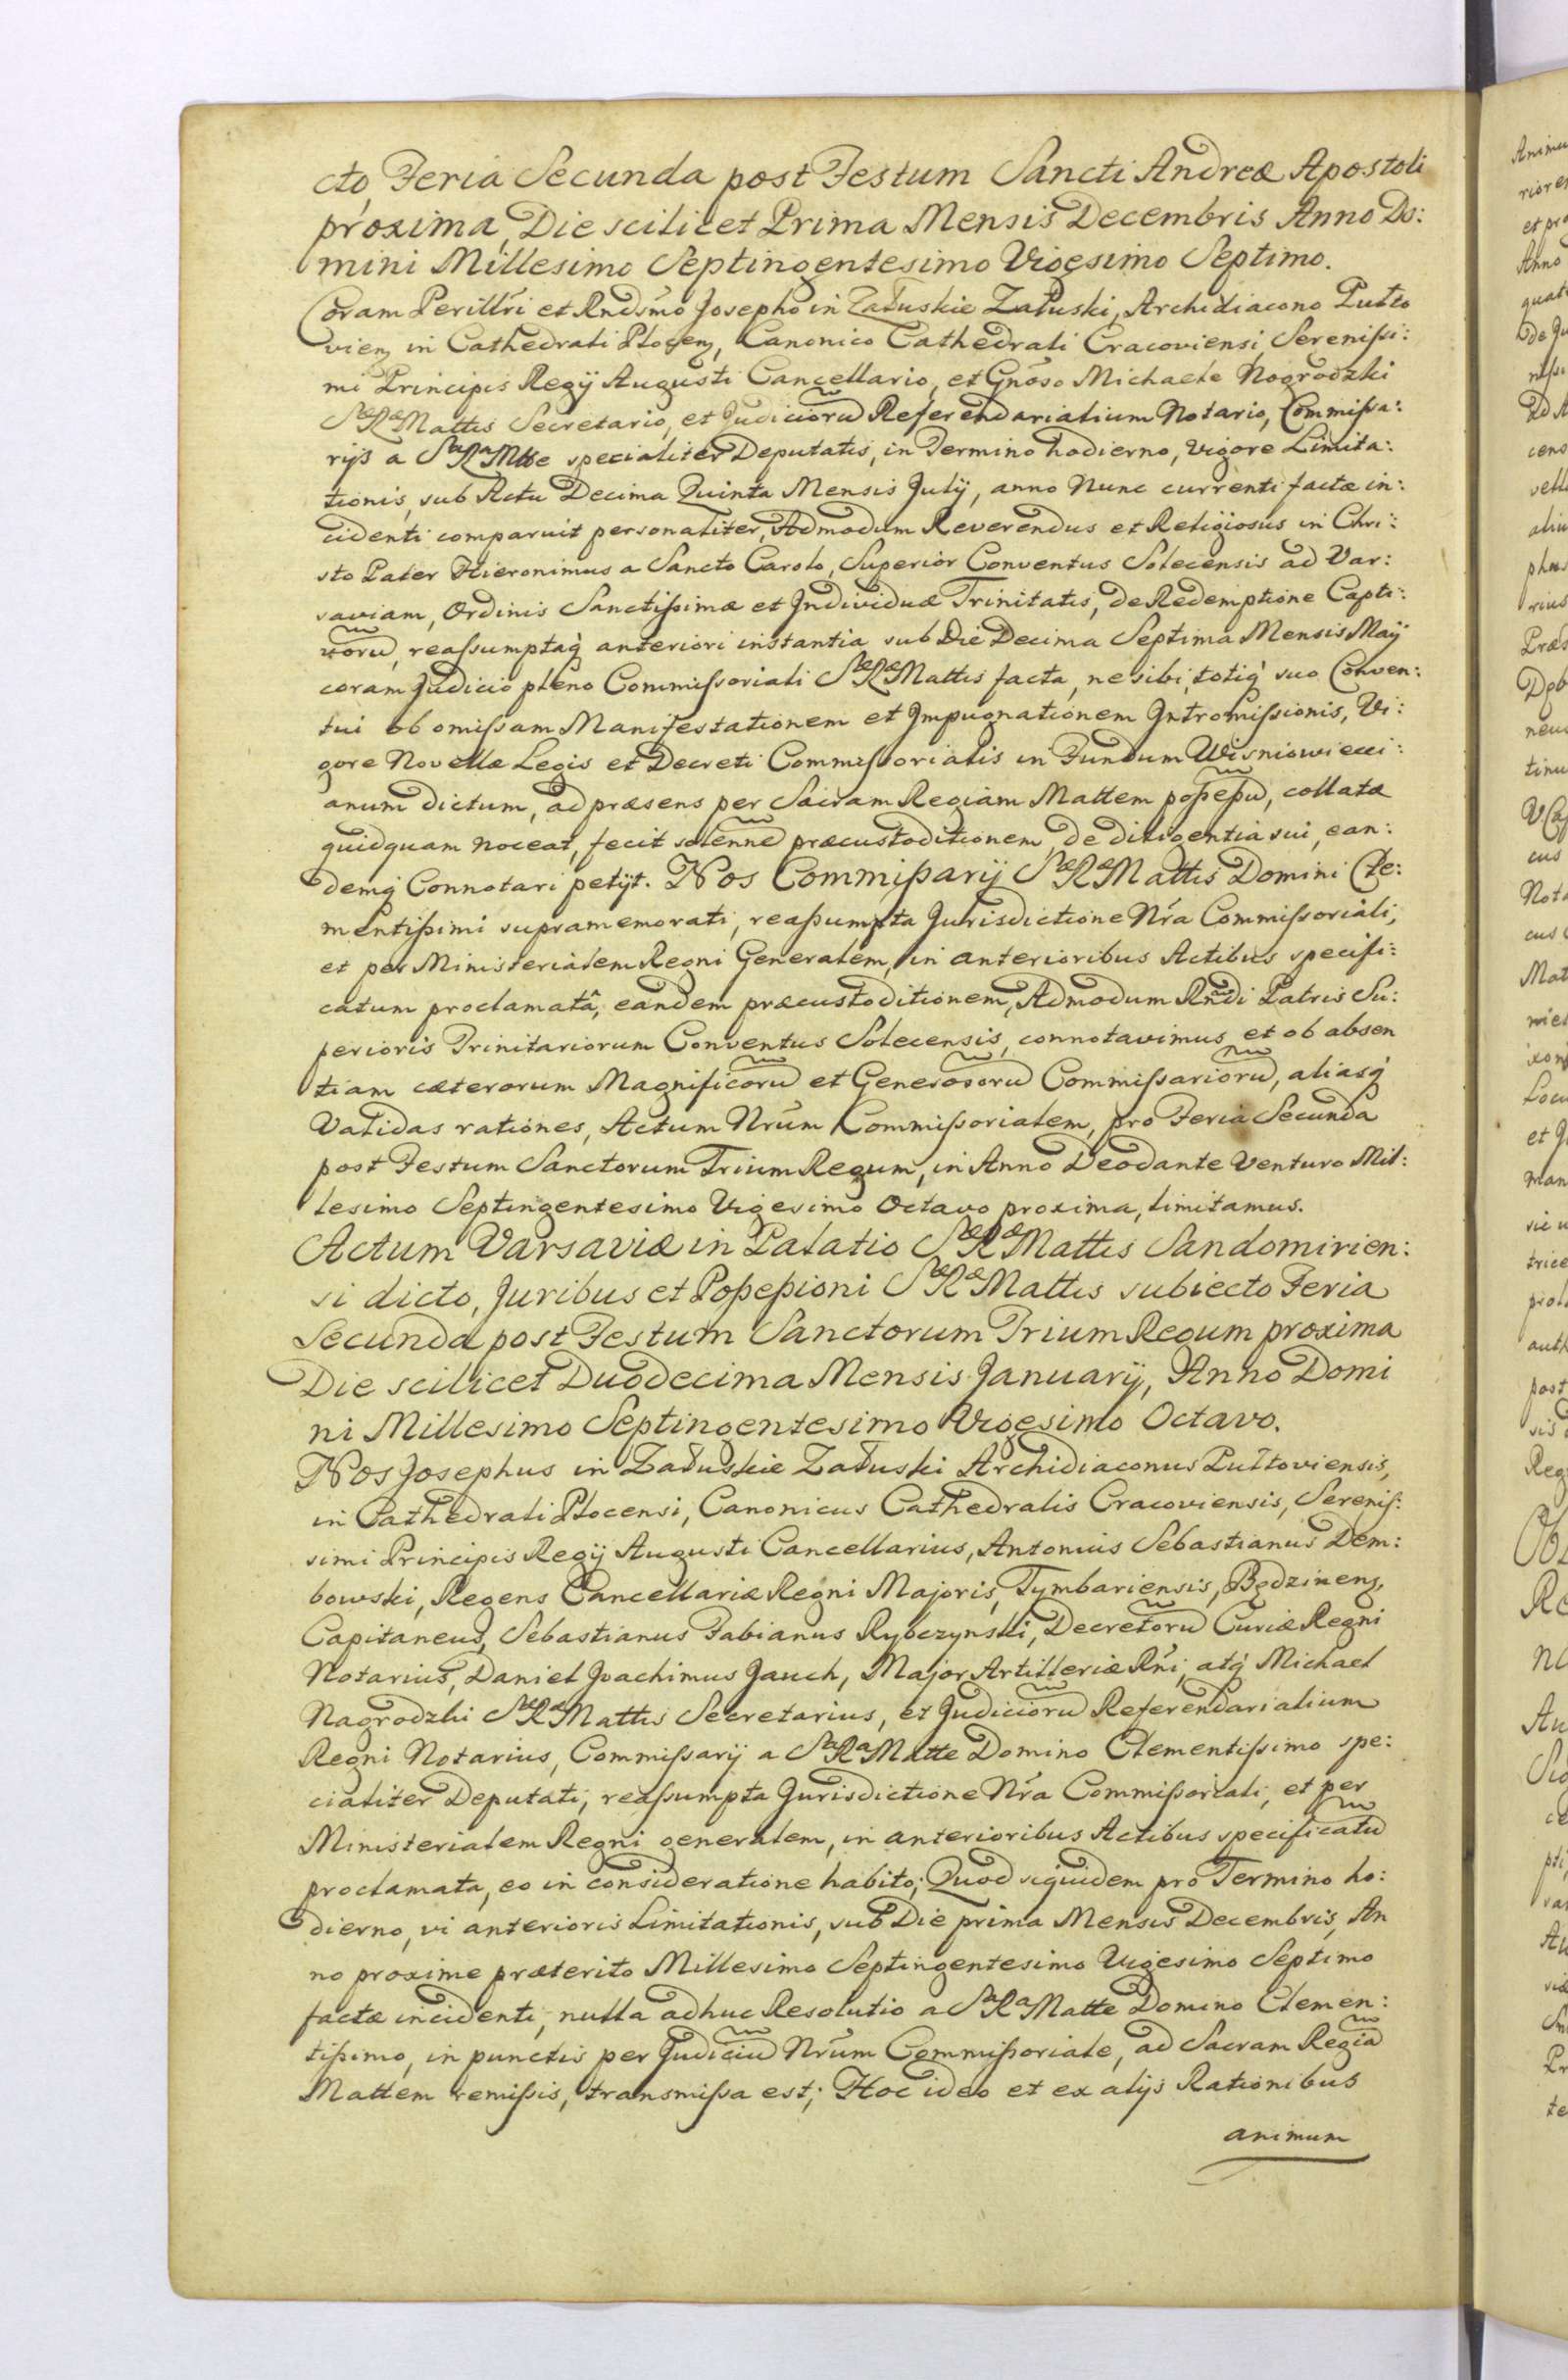 cto, Feria Secunda post Festum Sancti Andreæ Apostoli
proxima, Die scilicet Prima Mensis Decembris Anno Do:
mini Millesimo Septingentesimo Vigesimo Septimo.
Coram Perillri et Rndsmo Josepho in Załuskie Załuski, Archidiacono Pułto
vien in Cathedrali Plocen, Canonico Cathedrali Cracoviensi, Serenissi:
mi Principis Regij Augusti Cancellario, et Gnoso Michaele Nogrodzki
SæRæMattis Secretario, et Judicioru Referendarialium Notario, Commissa:
rijs a SaRaMtte specialiter Deputatis, in Termino hodierno, vigore Limita:
tionis, sub Actu Decima Quinta Mensis July, anno Nunc currenti factæ in:
cidenti comparuit personaliter, Admodum Reverendus et Religiosus in Chri:
sto Pater Hieronimus a Sancto Carolo, Superior Conventus Solecensis ad Var:
saviam, Ordinis Sanctissimæ et Individuæ Trinitatis, de Redemptione Capti:
voru, reassumptaq anteriori instantia sub Die Decima Septima Mensis Maÿ
coram Judicio pleno Commissoriali SæRæMattis facta, ne sibi, totiq suo Conven:
tui ob omissam Manifestationem et Impugnationem Intromissionis, Vi:
gore Novellæ Legis et Decreti Commissorialis in Fundum Wisniowieci:
anum dictum, ad præsens per Sacram Regiam Mattem possessu, collatæ
quidquam noceat, fecit solenne præcustoditionem, de diligentia sui, ean:
demq Connotari petÿt. Nos Commissarij SæRæMattis Domini Cle:
mentissimi supramemorati, reassumpta Jurisdictione Nra Commissoriali,
et per Ministerialem Regni Generalem, in anterioribus Actibus specifi:
catum proclamatâ, eandem præcustoditionem, Admodum Rndi Patris Su:
perioris Trinitariorum Conventus Solecensis, connotavimus et ob absen
tiam cæterorum Magnificoru et Generosoru Commissarioru, aliasq
Validas rationes, Actum Nrum Commissorialem, pro Feria Secunda
post Festum Sanctorum Trium Regum, in Anno Deodante Venturo Mil:
lesimo Septingentesimo Vigesimo Octavo proxima, limitamus.
Actum Varsaviæ in Palatio SæRæMattis Sandomirien:
si dicto, Juribus et Possessioni SæRæMattis subiecto Feria
Secunda post Festum Sanctorum Trium Regum proxima
Die scilicet Duodecima Mensis Januarÿ, Anno Domi
ni Millesimo Septingentesimo Vigesimo Octavo.
Nos Josephus in Załuskie Załuski Archidiaconus Pułtoviensis,
in Cathedrali Plocensi, Canonicus Cathedralis Cracoviensis, Serenis:
simi Principis Regij Augusti Cancellarius, Antonius Sebastianus Dem:
bowski, Regens Cancellariæ Regni Majoris, Tymbariensis, Będzinen,
Capitaneus, Sebastianus Fabianus Rybczynski, Decretoru Curiæ Regni
Notarius, Daniel Joachimus Jauch, Major Artilleriæ Rni, atq Michael
Nagrodzki SæRæMattis Secretarius, et Judicioru Referendarialium
Regni Notarius, Commissarij a SaRaMatte Domino Clementissimo spe:
cialiter Deputati, reassumpta Jurisdictione Nra Commissoriali, et per
Ministerialem Regni generalem, in anterioribus Actibus specificatu
proclamata, eo in consideratione habito; Quod siquidem pro Termino ho:
dierno, vi anterioris Limitationis, sub Die prima Mensis Decembris, An
no proxime præterito Millesimo Septingentesimo Vigesimo Septimo
factæ incidenti, nulla adhuc Resolutio a SaRaMatte Domino Clemen:
tissimo, in punctis per Judiciu Nrum Commissoriale, ad Sacram Regia
Mattem remissis, transmissa est; Hoc ideo et ex alijs Rationibus
animum